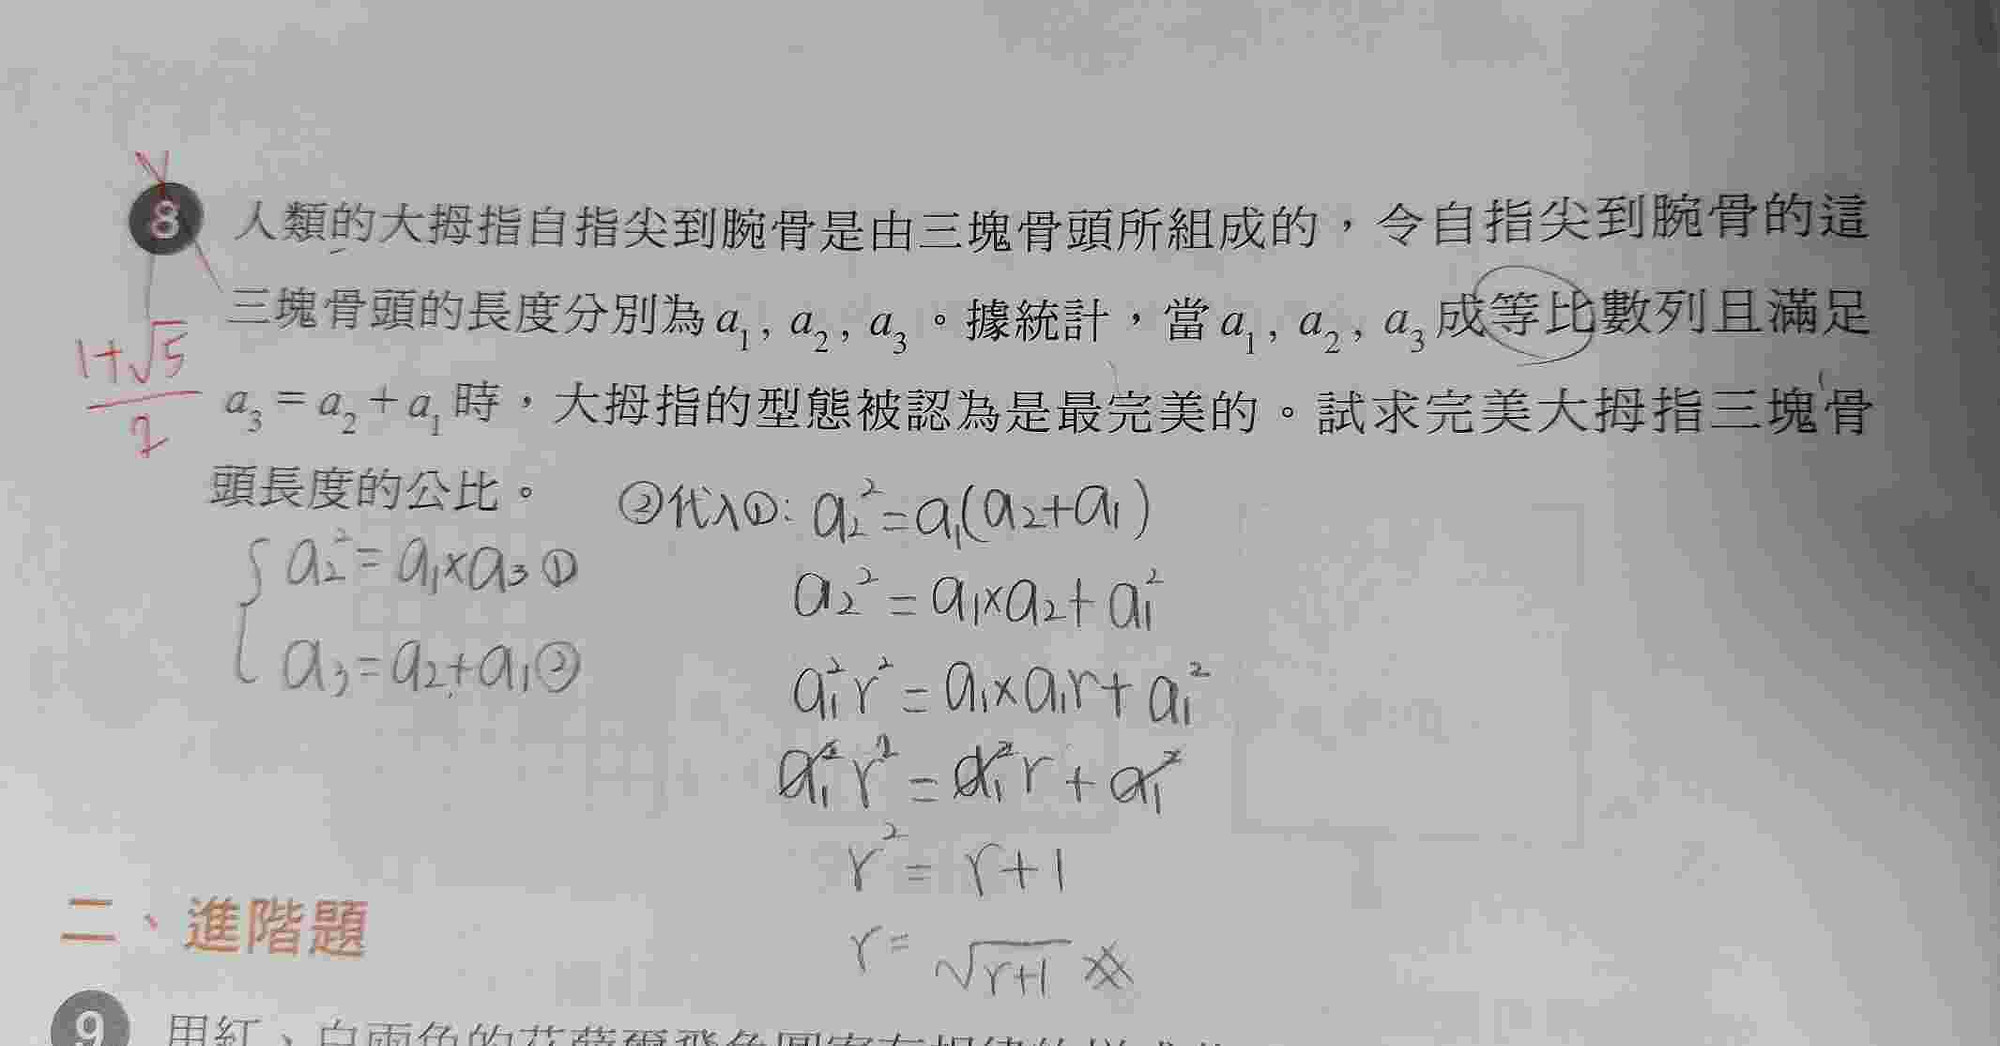 8 人類的大拇指自指尖到腕骨是由三塊骨頭所組成的，令自指尖到腕骨的這
三塊骨頭的長度分別為 a₁, a₂, a₃。據統計，當 a₁, a₂, a₃ 成等比數列且滿足
a₃ = a₂ + a₁ 時，大拇指的型態被認為是最完美的。試求完美大拇指三塊骨
頭長度的公比。
1+√5
2
a₂² = a₁×a₃ ①
a₃ = a₂+a₁ ②
②代入①: a₂² = a₁(a₂+a₁)
a₂² = a₁×a₂ + a₁²
a₁²r² = a₁×a₁r + a₁²
a₁²r² = a₁²r + a₁²
r² = r+1
r = √r+1
二、進階題
9 用紅、白兩色的花